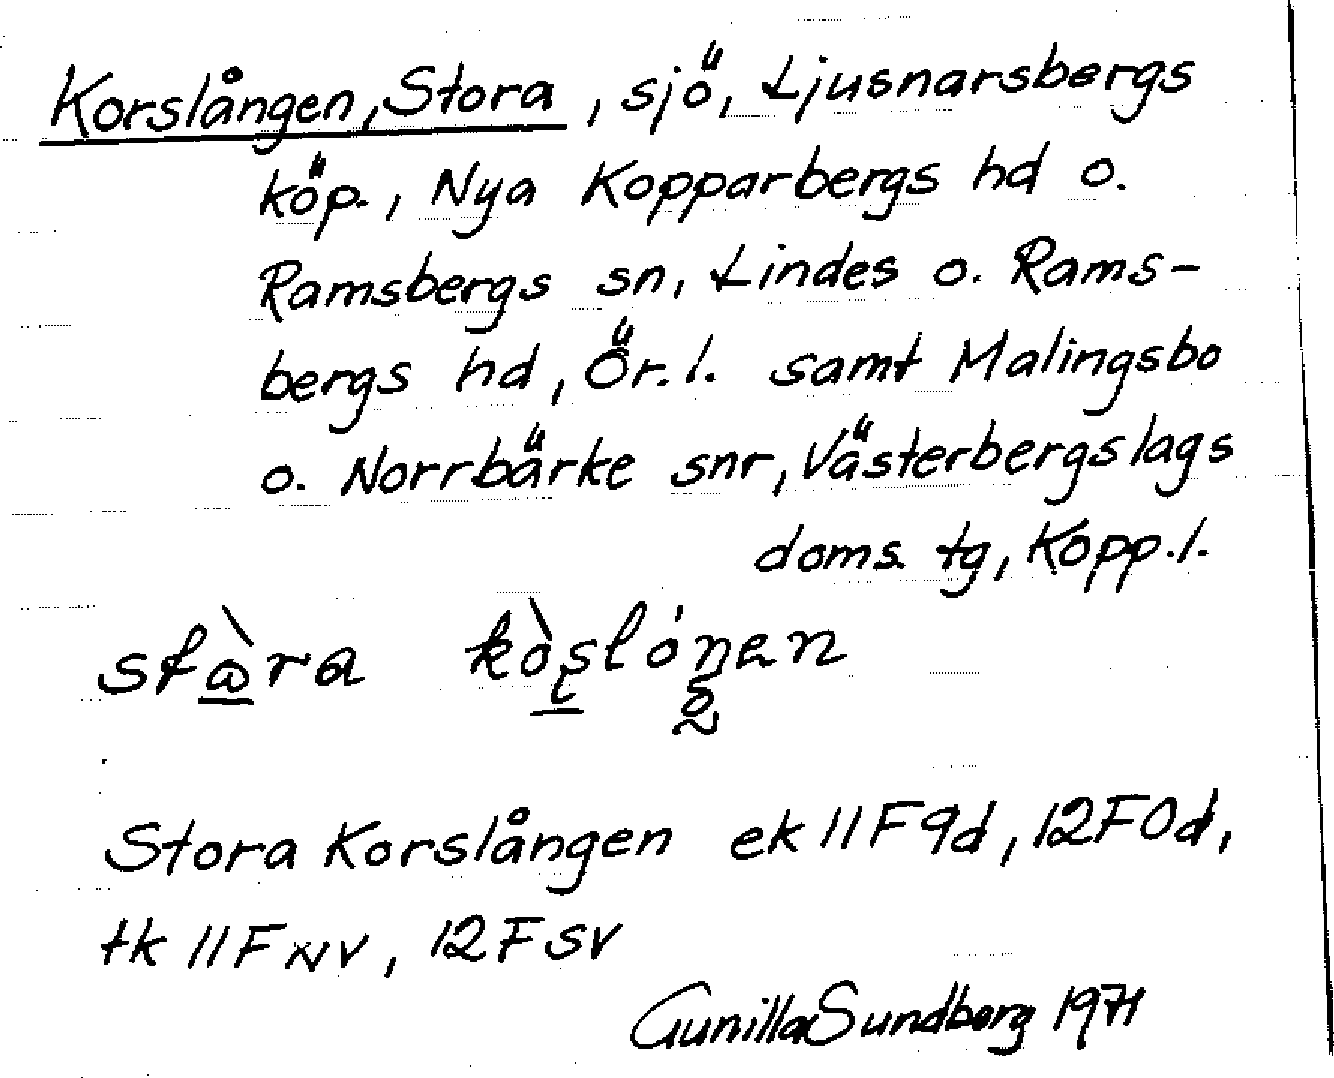 Korslången, Stora, sjö, Ljusnarsbergs
köp., Nya Kopparbergs hd o.
Ramsbergs sn, Lindes o. Rams-
bergs hd, Ör. l. samt Malingsbo
o. Norrbärke snr, Västerbergslags
doms. tg, Kopp. l.
Stora Korslången ek 11F9d, 12F0d,
tk 11F NV, 12F SV
Gunilla Sundberg 1971